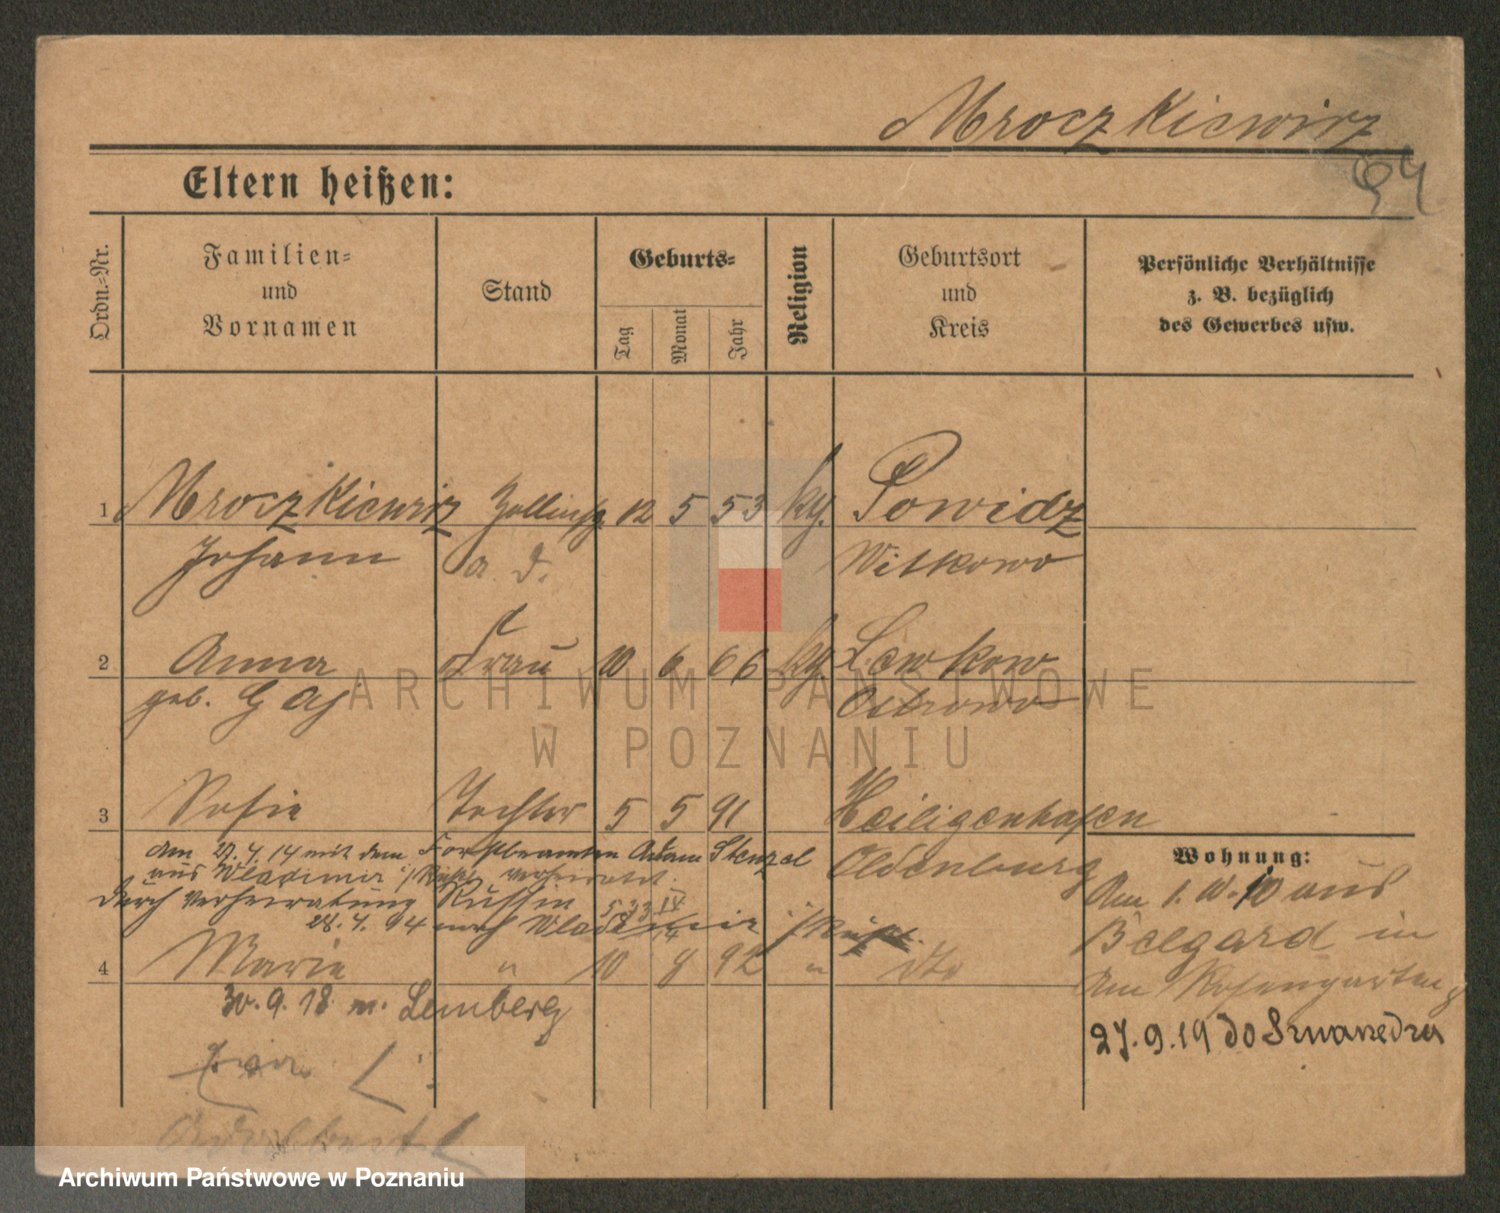 Mroczkiewicz
94
Eltern heißen:
Ordn.-Nr.
Familien-
und
Vornamen
Stand
Geburts-
Tag
Monat
Jahr
Religion
Geburtsort
und
Kreis
Persönliche Verhältnisse
z. B. bezüglich
des Gewerbes usw.
1 Mroczkiewicz 12 5 53 Powidz
Johann a. D. Witkowo
2 Anna Frau 10 6 66 Lewkow
geb. Gaj Ostrowo
3 Sofie Tochter 5 5 91 Heiligenhafen
am 27.4.14 mit dem Forstbeamten Adam Stenzel Oldenburg
aus Wladimir verheiratet.
durch Verheiratung Russin
28.4. 94 nach
4 Marie " 10 8 92 " dto
30.9.18 n. Lemberg
Wohnung:
Am 1. 10. 10 aus
Belgard in
Am Rosengarten
27.9.19 do Szwarzedza
ARCHIWUM PAŃSTWOWE
W POZNANIU
Archiwum Państwowe w Poznaniu